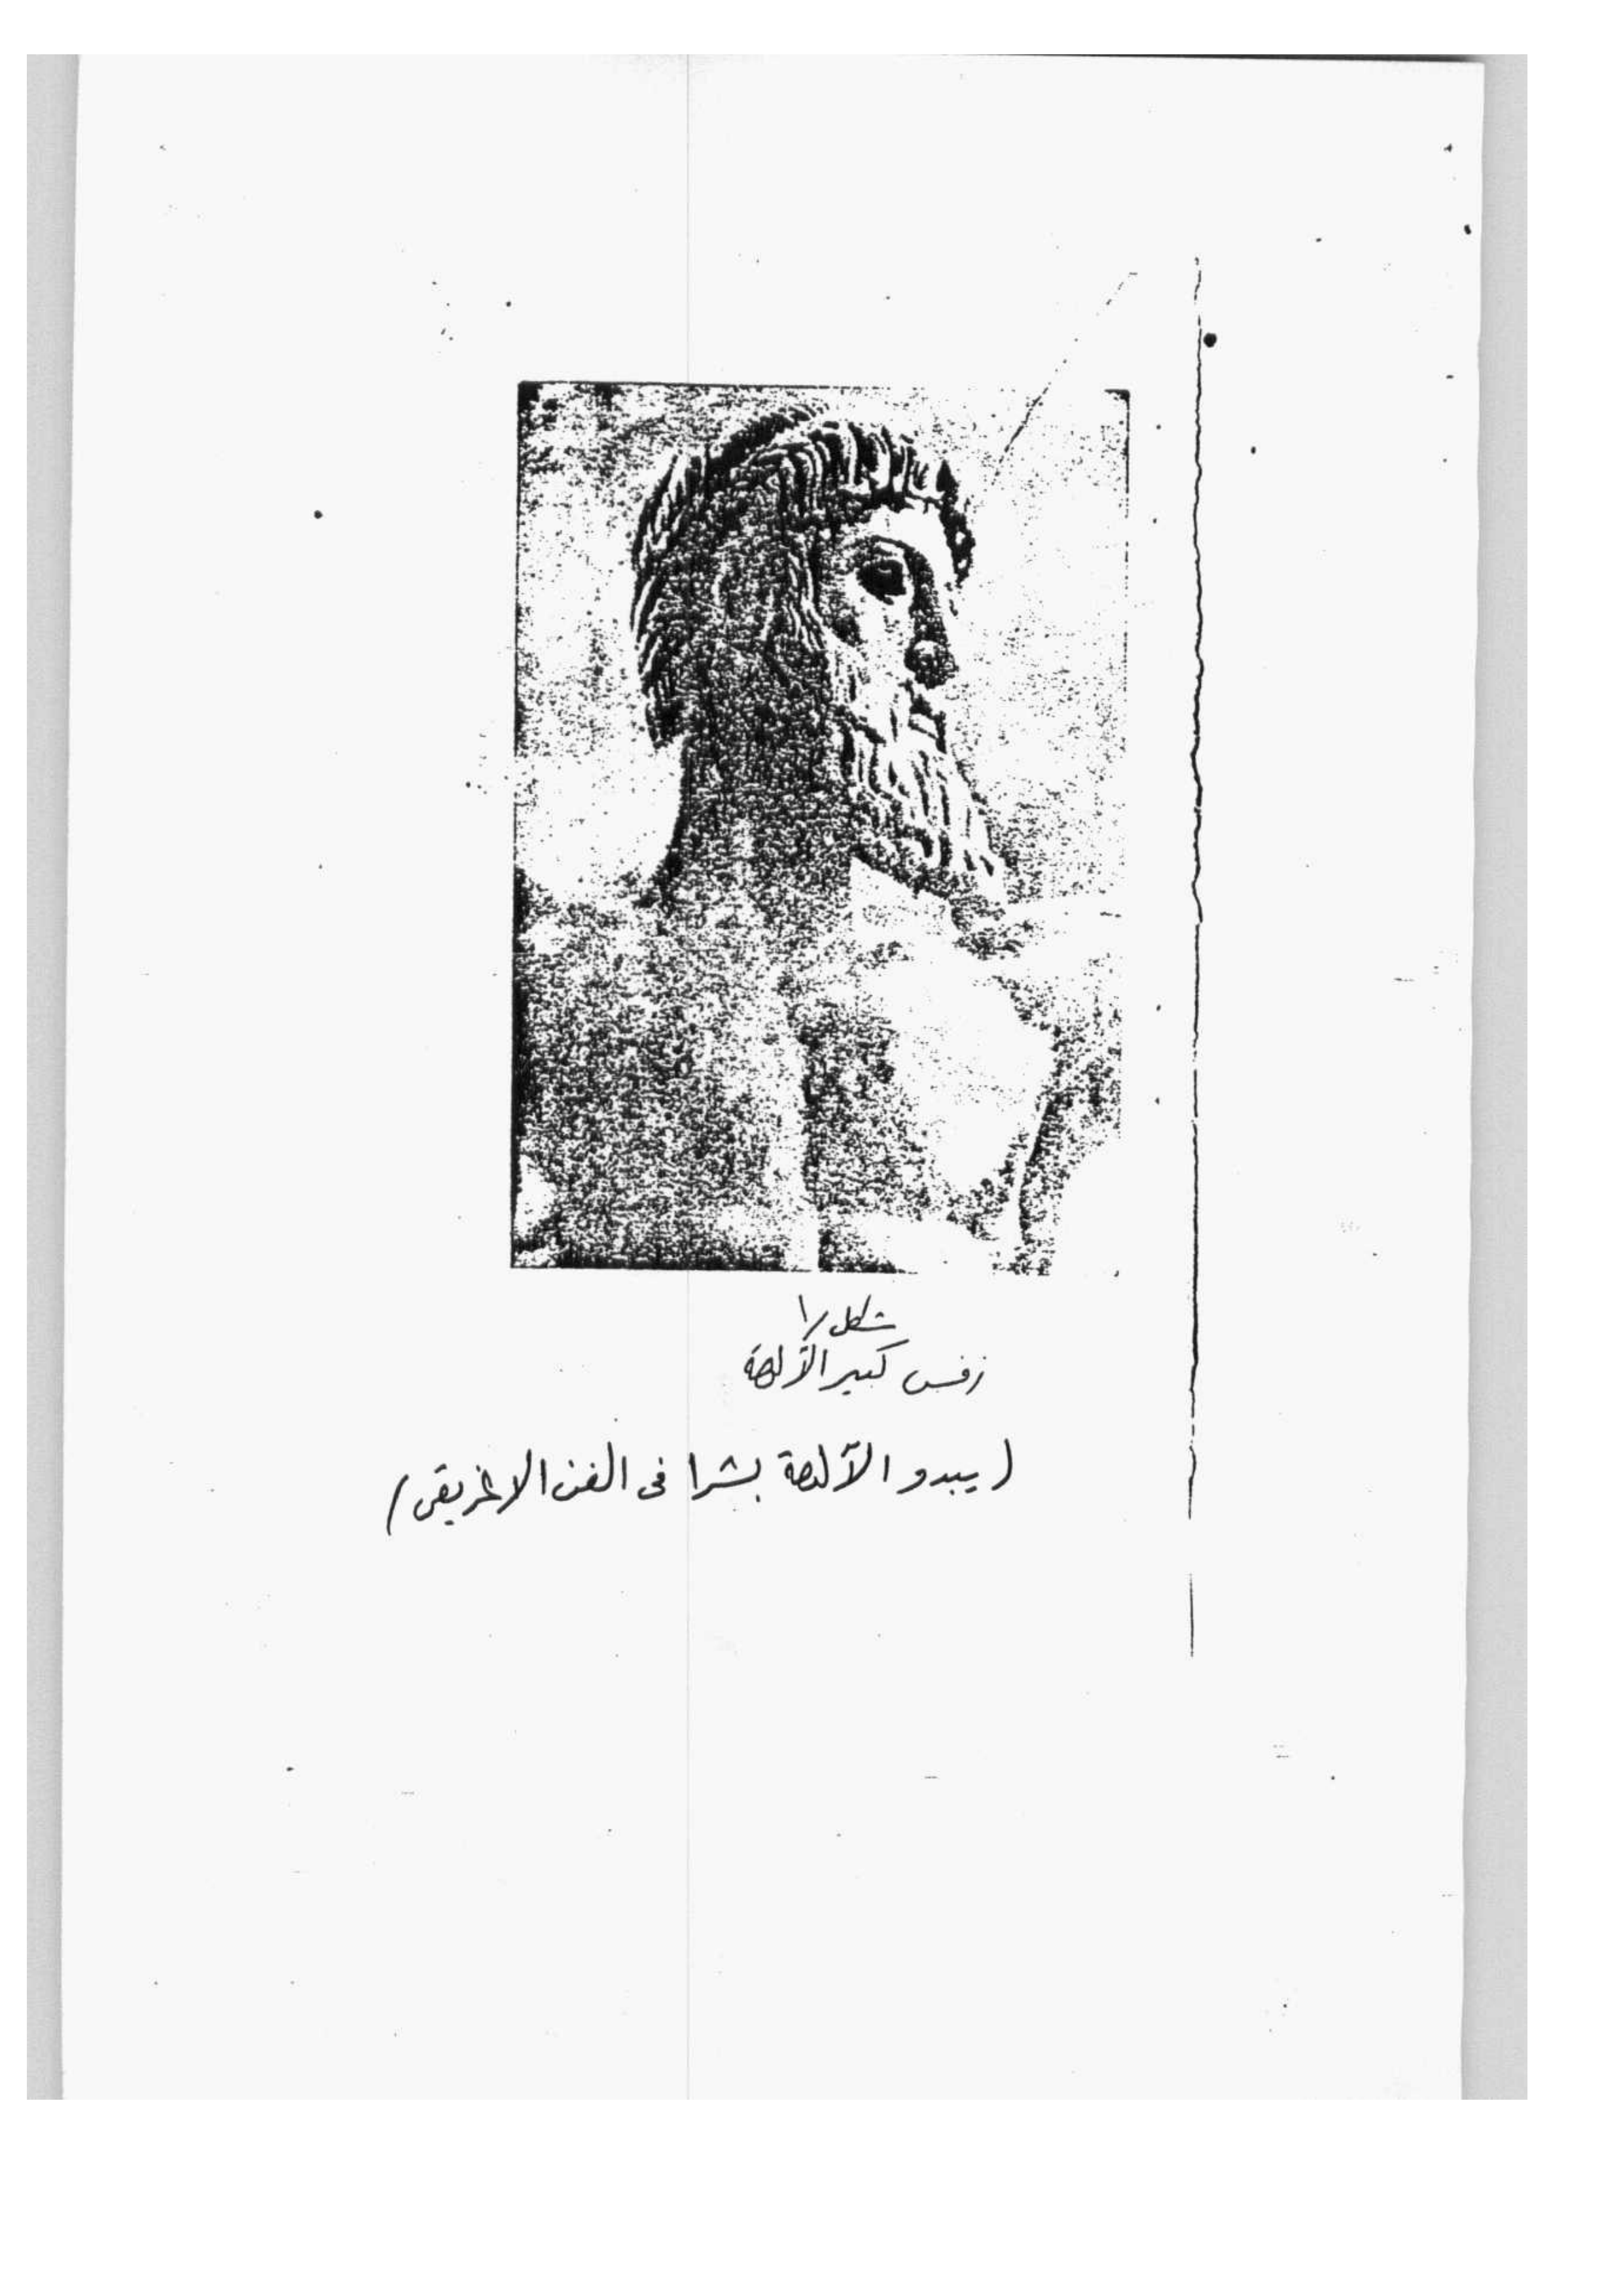 شكل / ١
زفس كبير الآلهة
(يبدو الآلهة بشرا فى الفن الاغريقى)